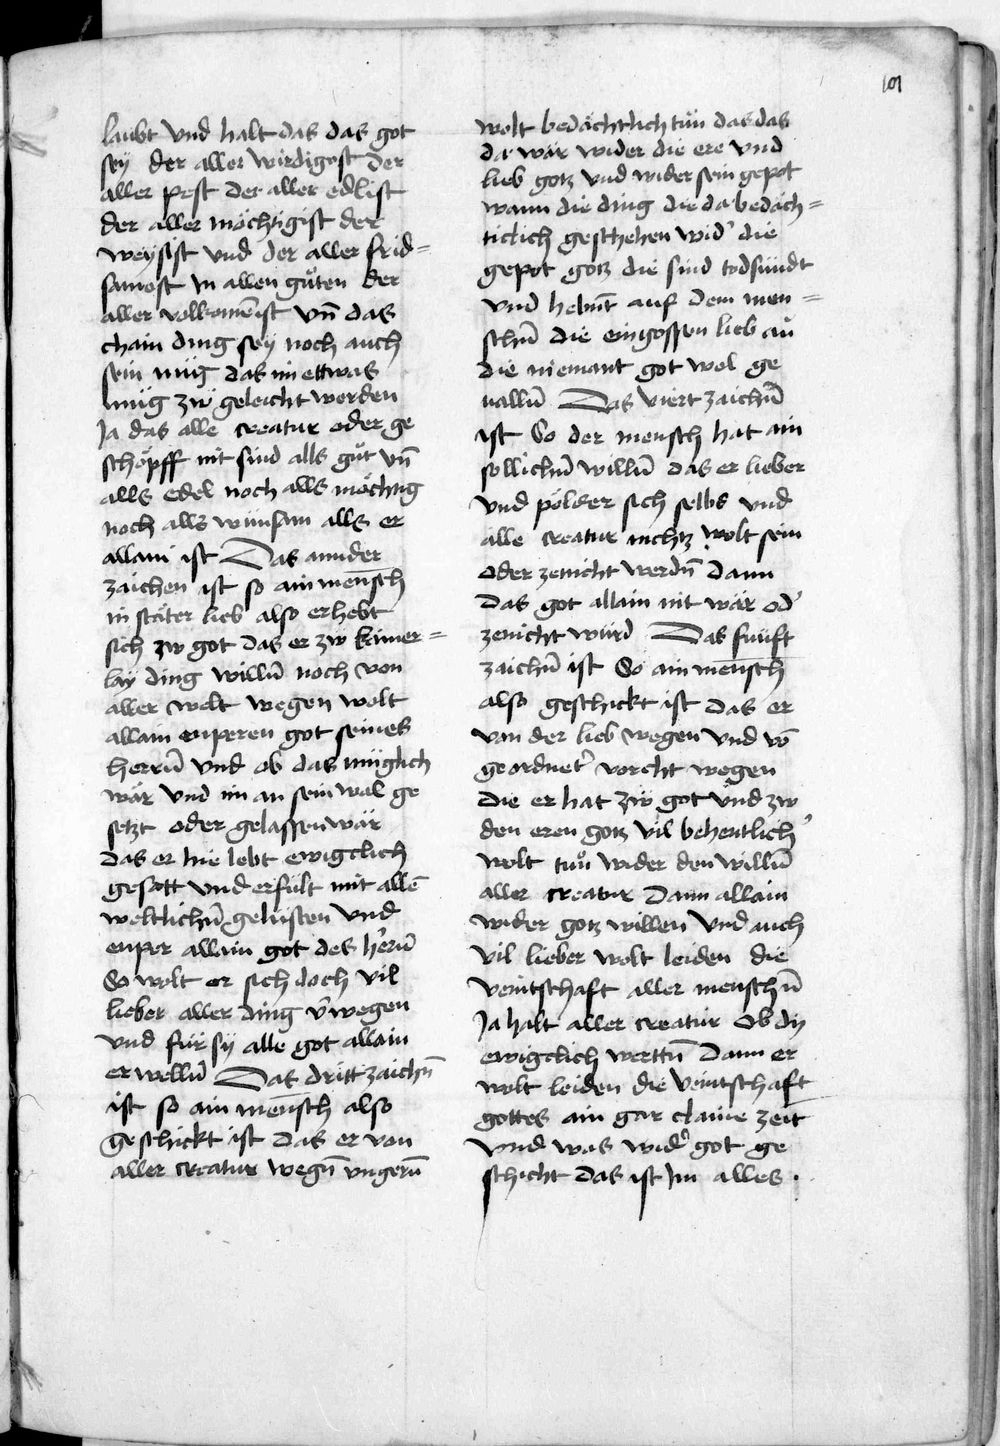 101
laubt vnd halt das das got
sey der aller wirdigost der
aller pest der aller edlist
der aller mächtigist der
weysist vnd der aller frid=
samost in allen guͤten der
aller volkomēist vn̄ das
chain ding sey noch auch
sein müg das im ettwas
müg zw geleicht werden
Ja das alle creatur oder ge
schöpff nit sind alls guͤt vn̄
alls edel noch alls mächtig
noch alls wunsam alls er
allain ist Das annder
zaichen ist so ain mensch
in stäter lieb also erhebt
sich zw got das er zw kainer=
lay ding willn̄ noch von
aller welt wegen wolt
allain enperen got seines
herrn̄ vnd ob das müglich
wär vnd im an sein wal ge
setzt oder gelassen wär
das er hie lebt ewigclich
gesatt vnd erfült mit allē
weltlichn̄ gelüsten vnd
enper allain got des hern̄
So wolt er sich doch vil
lieber aller ding v̄wegen
vnd für sy alle got allain
er welln̄ Das dritt zaichn̄
ist so ain mensch also
geschickt ist das er von
aller creatur wegn̄ vngern̄
wolt bedächtlich tün das das
da wär wider die ere vnd
lieb gotz vnd wider sein gepot
wann die ding die da bedäch=
ticlich geschehen wid' die
gepot gotz die sind todsündt
vnd hebn̄t auf dem men=
schn̄ die eingossen lieb an
die niemant got wol ge
ualln̄ Das viert zaichn̄
ist So der mensch hat ain
sollichn̄ willn̄ das er lieber
vnd pölder sich selbs vnd
alle creatur nichtz wolt sein
oder zenicht werdn̄ dann
das got allain nit wär od'
zenicht würd Das fünft
zaichn̄ ist So ain mensch
also geschickt ist das er
von der lieb wegen vnd vō
geordnet' vorcht wegen
die er hat zw got vnd zw
den eren gotz vil behentlich'
wolt tuͤn wider den willn̄
aller creatur dann allain
wider gotz willen vnd auch
vil lieber wolt leiden die
veintschaft aller menschn̄
Ja halt aller creatur ob dy
ewigclich werttn̄ dann er
wolt leiden die veintschaft
gottes ain gar claine zeit
vnd was wid' got ge
schicht das ist im alles .